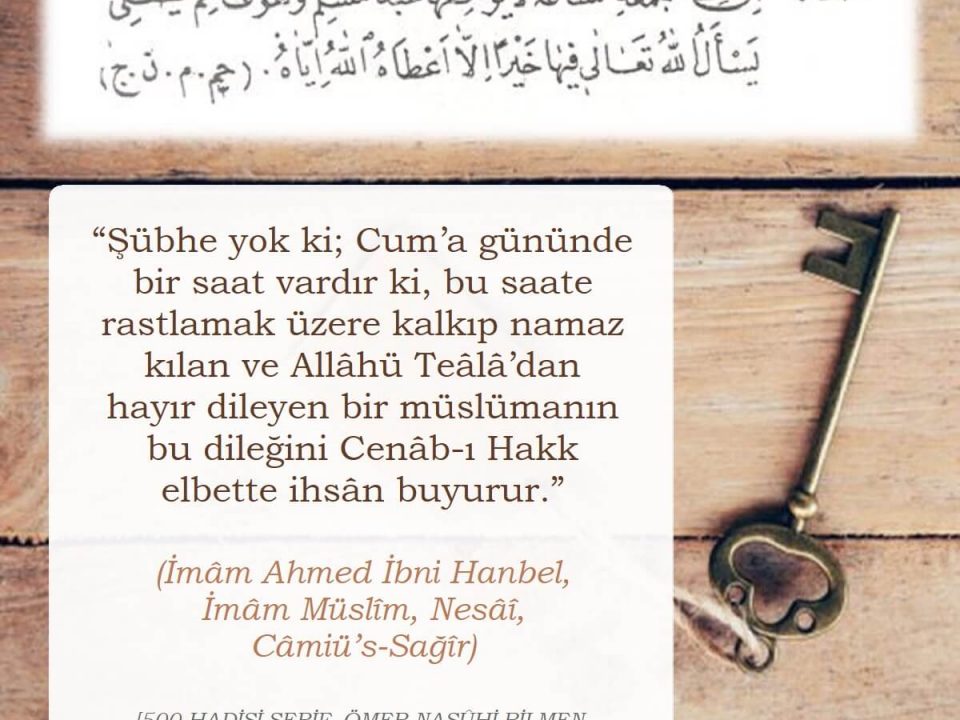 يَسْأَلُ اللّٰهَ تَعَالٰى فِيهَا خَيْرًا اِلَّا اَعْطَاهُ اللّٰهُ اِيَّاهُ.
“Şübhe yok ki; Cum’a gününde
bir saat vardır ki, bu saate
rastlamak üzere kalkıp namaz
kılan ve Allâhü Teâlâ’dan
hayır dileyen bir müslümanın
bu dileğini Cenâb-ı Hakk
elbette ihsân buyurur.”
(İmâm Ahmed İbni Hanbel,
İmâm Müslîm, Nesâî,
Câmiü’s-Sağîr)
[500 HADİSİ ŞERİF, ÖMER NASÛHİ BİLMEN